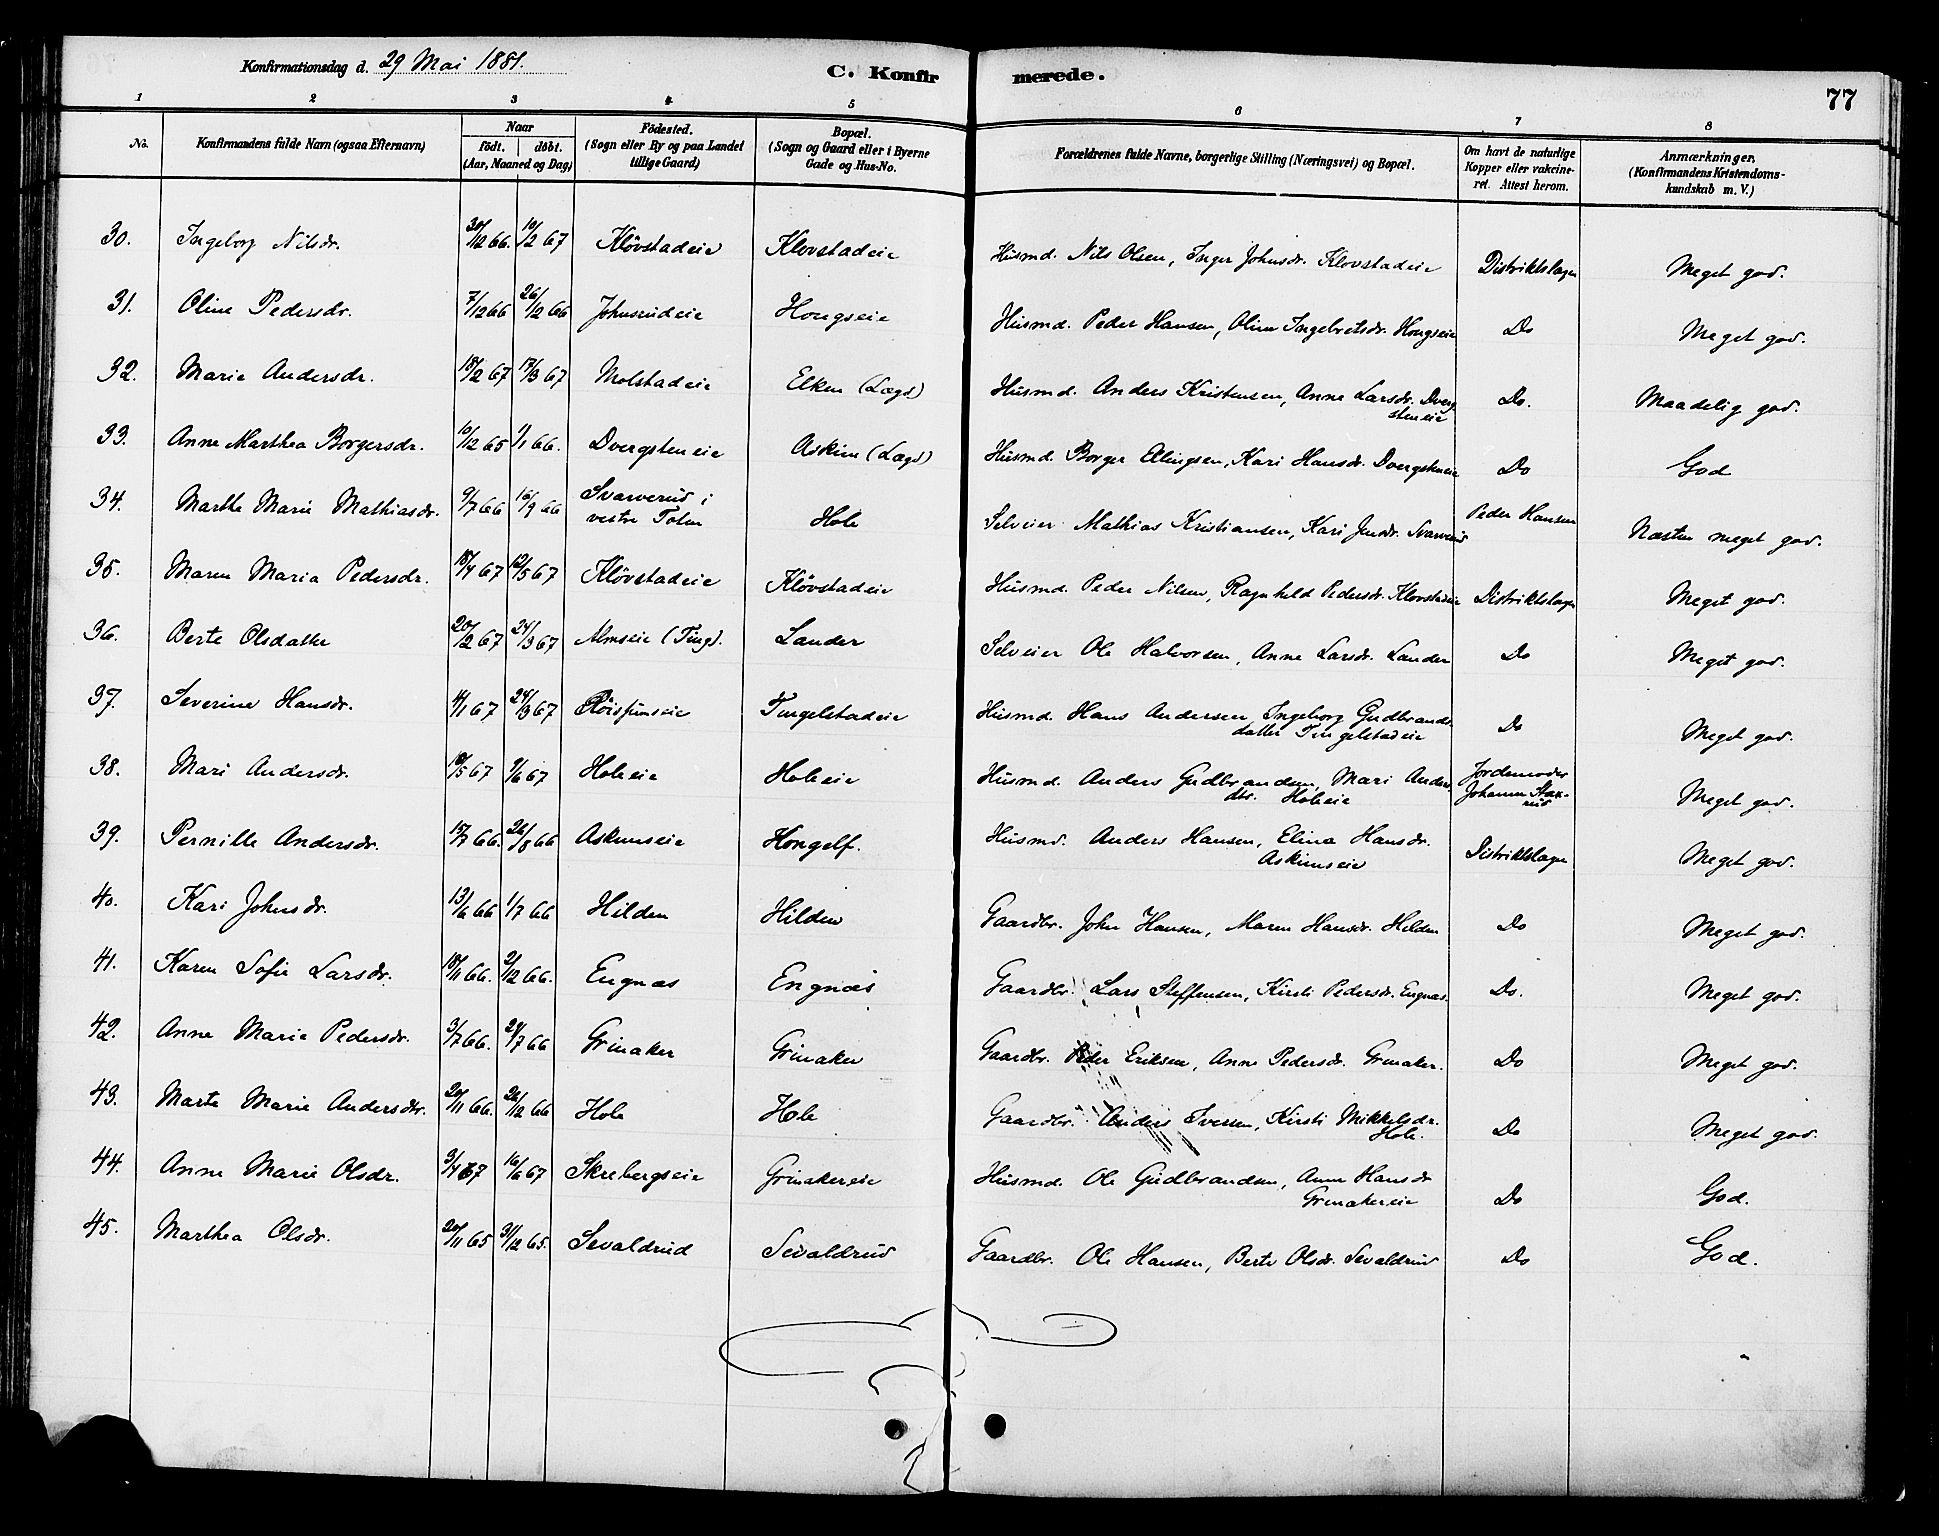 Konfirmationsdag d. 29 Mai 1881.
C. Konfirmerede.
77
1 2 3 4 5 6 7 8
No.
Konfirmandens fulde Navn (ogsaa Efternavn)
Naar
födt. döbt.
(Aar, Maaned og Dag)
Födested.
(Sogn eller By og paa Landet
tillige Gaard)
Bopæl.
(Sogn og Gaard eller i Byerne
Gade og Hus-No.
Forældrenes fulde Navne, borgerlige Stilling (Næringsvei) og Bopæl.
Om havt de naturlige
Kopper eller vakcine-
ret. Attest herom.
Anmærkninger,
(Konfirmandens Kristendoms-
kundskab m. V.)
30. Ingeborg Nilsdr. 30/12 66. 10/2 67 Klövstadeie Klovstadeie Husmd. Nils Olsen, Inger Johnsdr. Klovstadeie Distriktslægen Meget god.
31. Oline Pedersdr. 7/12 66 26/12 66 Johnsrudeie Hongseie Husmd. Peder Hansen, Oline Ingebretsdr. Hongseie Do Meget god.
32. Marie Andersdr. 18/2 67 17/3 67 Molstadeie Elken (Lægd) Husmd. Anders Kristensen, Anne Larsdr. Dverg
steneie Do. Maadelig god.
33. Anne Marthea Borgersdr. 10/12 65 1/1 66. Dvergsteneie Askim (Lægd) Husmd. Borger Ellingsen, Kari Hansdr. Dvergsteneie Do God
34. Marthe Marie Mathiasdr. 9/7 66 16/9 66 Svarverud i
vestre Toten Hole Selveier Mathias Kristiansen, Kari Jensdr. Svarverud Peder Hansen Næsten meget god.
35. Maren Maria Pedersdr. 18/4 67 12/5 67 Klövstadeie Klövstadeie Husmd. Peder Nilsen, Ragnhild Pedersdr. Klovstadeie Distriktslægen Meget god.
36. Berte Olsdatter 20/2 67 24/3 67 Almseie (Tingd). Lander Selveier Ole Halvorsen, Anne Larsdr. Lander Do Meget god.
37. Severine Hansdr. 14/1 67 24/3 67 Röisumseie Tingelstadeie Husmd. Hans Andersen, Ingeborg Gudbrands-
datter Tingelstadeie Do Meget god.
38. Mari Andersdr. 10/5 67 9/6 67 Holeeie Holeeie Husmd. Anders Gudbrandsen, Mari Anders
dtr. Holeeie Jordemoder
Johanne Stax-
rud Meget god.
39. Pernille Andersdr. 15/7 66. 26/8 66 Askimseie Hongelf. Husmd. Anders Hansen, Elina Hansdr.
Askimseie Distriktslægen Meget god.
40. Kari Johnsdr. 13/6 66 1/7 66 Hilden Hilden Gaardbr. John Hansen, Maren Hansdr. Hilden Do Meget god.
41. Karen Sofie Larsdr. 18/11 66. 2/12 66. Engnæs Engnæs Gaardbr. Lars Steffensen, Kirsti Pedersdr. Engnæs. Do. Meget god.
42. Anne Marie Pedersdr. 3/7 66. 29/7 66 Grinaker Grinaker Gaardbr. Peder Eriksen, Anne Pedersdr. Grinaker. Do Meget god.
43. Marte Marie Andersdtr. 20/11 66. 26/12 66 Hole Hole Gaardbr. Anders Iversen, Kirsti Mikkelsdr.
Hole. Do Meget god.
44. Anne Marie Olsdr. 9/4 67 16/6 67 Skrebergseie Grinakereie Husmd. Ole Gudbrandsen, Anne Hansdr
Grinakereie Do God.
45. Marthea Olsdr. 20/11 65 31/12 65. Sevaldrud Sevaldrud Gaardbr. Ole Hansen, Berte Olsdr. Sevaldrud Do God.